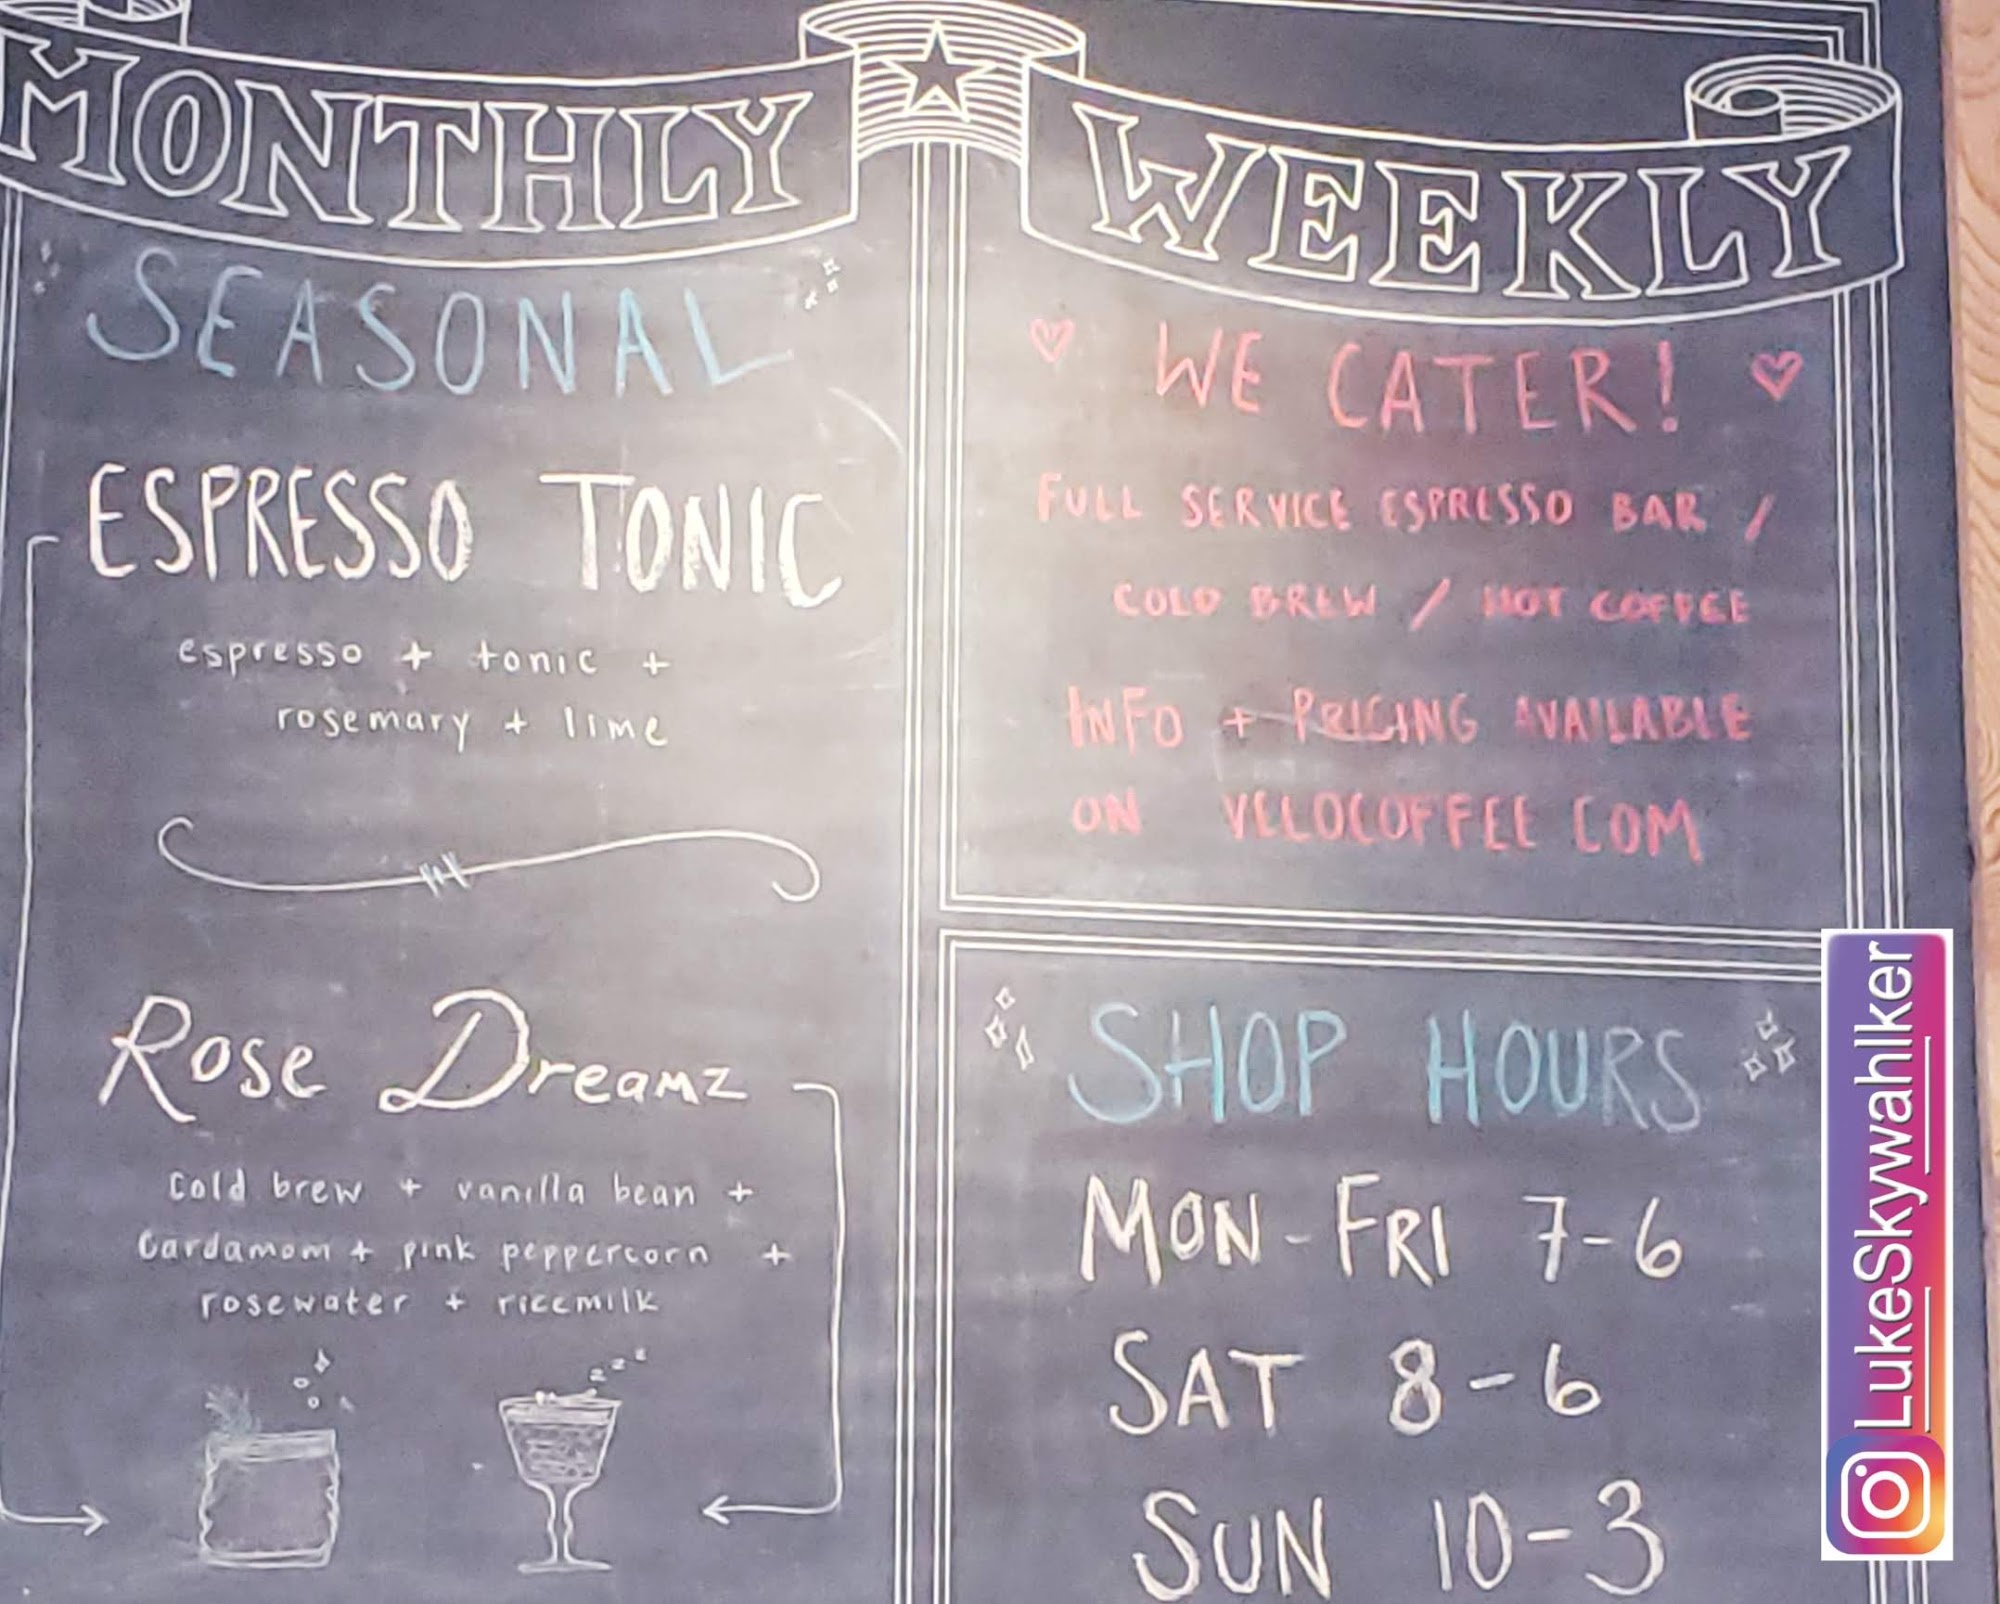 MONTHLY
SEASONAL
ESPRESSO TONIC
espresso + tonic +
rosemary + lime
Rose Dreamz
cold brew + vanilla bean +
Cardamom + pink peppercorn +
rosewater + ricemilk
z z z
WEEKLY
WE CATER!
FULL SERVICE ESPRESSO BAR /
COLD BREW / HOT COFFEE
INFO + PRICING AVAILABLE
ON VELOCOFFEE COM
SHOP HOURS
MON-FRI 7-6
SAT 8-6
SUN 10-3
LukeSkywahlker